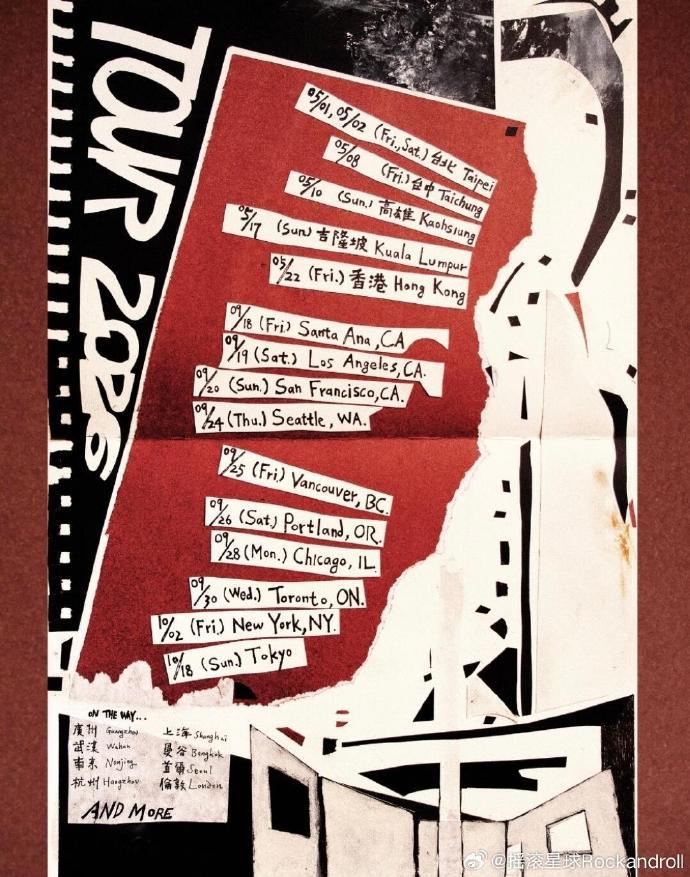 TOUR 2026
05/01, 05/02 (Fri., Sat.) 台北 Taipei
05/08 (Fri.) 台中 Taichung
05/10 (Sun.) 高雄 Kaohsiung
05/17 (Sun.) 吉隆坡 Kuala Lumpur
05/22 (Fri.) 香港 Hong Kong
09/18 (Fri.) Santa Ana, CA
09/19 (Sat.) Los Angeles, CA.
09/20 (Sun.) San Francisco, CA.
09/24 (Thu.) Seattle, WA.
09/25 (Fri.) Vancouver, BC.
09/26 (Sat.) Portland, OR.
09/28 (Mon.) Chicago, IL.
09/30 (Wed.) Toronto, ON.
10/02 (Fri.) New York, NY.
10/18 (Sun.) Tokyo
ON THE WAY...
廣州 Guangzhou 上海 Shanghai
武漢 Wuhan 曼谷 Bangkok
南京 Nanjing 首爾 Seoul
杭州 Hangzhou 倫敦 London
AND MORE
@摇滚星球Rockandroll